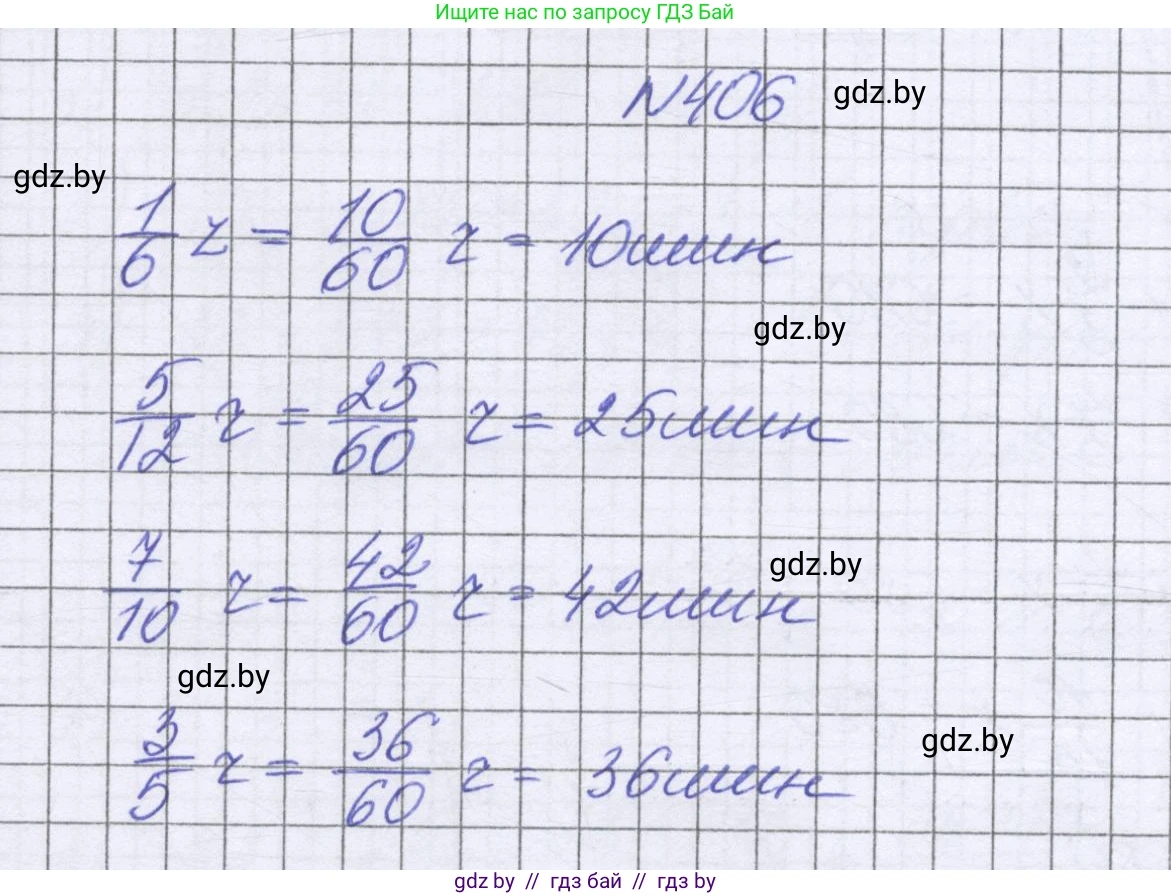 Ищите нас по запросу ГДЗ Бай
N406 gdz.by
gdz.by
1/6 ч = 10/60 ч = 10мин
gdz.by
5/12 ч = 25/60 ч = 25мин
7/10 ч = 42/60 ч = 42мин
gdz.by
gdz.by
3/5 ч = 36/60 ч = 36мин
gdz.by
gdz by // гдз бай // гдз by